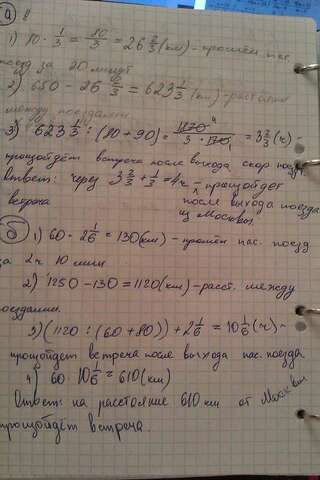 а)
1) 80 · 1/3 = 80/3 = 26 2/3 (км) – прошёл пас.
поезд за 20 минут
2) 650 – 26 2/3 = 623 1/3 (км) – расстояние
между поездами.
3) 623 1/3 : (80 + 90) = = 3 2/3 (ч) –
произойдёт встреча после выхода скор поезда.
Ответ: через 3 2/3 + 1/3 = 4ч произойдет
встреча после выхода поезда
из Москвы.
б) 1) 60 · 2 1/6 = 130 (км) – прошёл пас. поезд
за 2ч 10 мин
2) 1250 – 130 = 1120 (км) – расст. между
поездами.
3) (1120 : (60 + 80)) + 2 1/6 = 10 1/6 (ч) –
произойдет встреча после выхода пас. поезда
4) 60 · 10 1/6 = 610 (км)
Ответ: на расстояние 610 км от Москвы
произойдёт встреча.